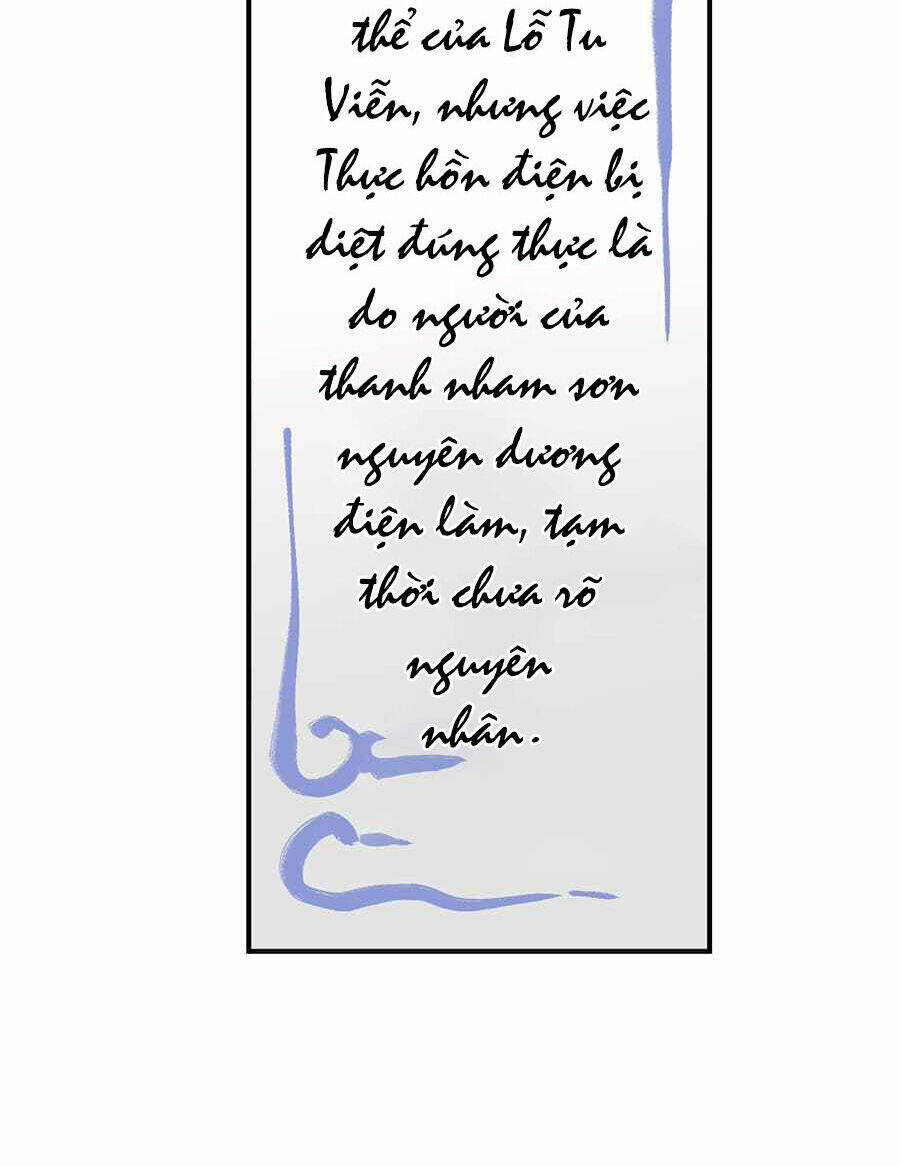 thể của Lỗ Tu
Viễn, nhưng việc
Thực hồn điện bị
diệt đúng thực là
do người của
thanh nham sơn
nguyên dương
điện làm, tạm
thời chưa rõ
nguyên
nhân.